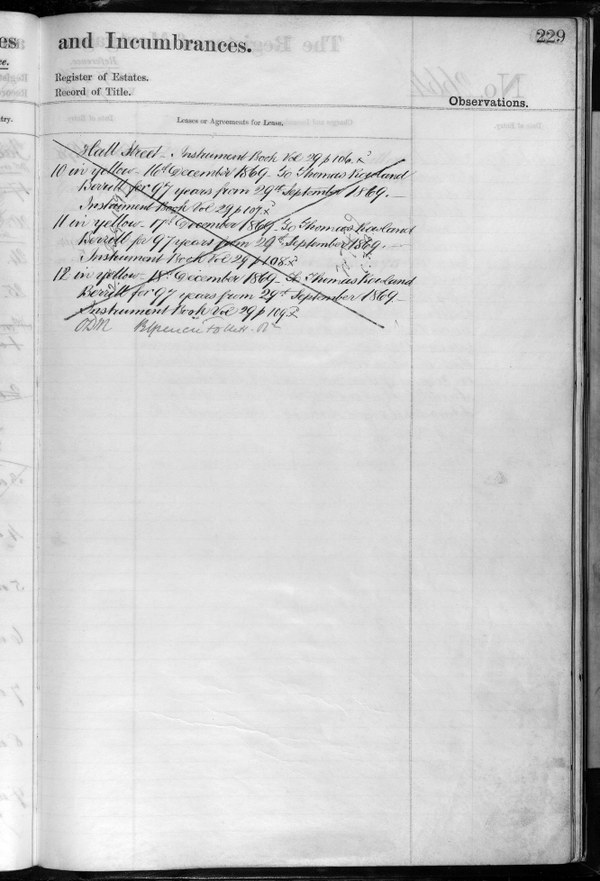 and Incumbrances.
229
Register of Estates.
Record of Title.
Observations.
Leases or Agreements for Lease.
Hall Street - Instrument Book Vol 29 p 106.
10 in yellow - 16th December 1869 - To Thomas Rowland
Berrett for 97 years from 29th September 1869. -
Instrument Book Vol 29 p 107
11 in yellow - 17th December 1869 - To Thomas Rowland
Berrett for 97 years from 29th September 1869. -
Instrument Book Vol 29 p 108.
12 in yellow - 18th December 1869 - To Thomas Rowland
Berrett for 97 years from 29th September 1869 -
Instrument Book Vol 29 p 109